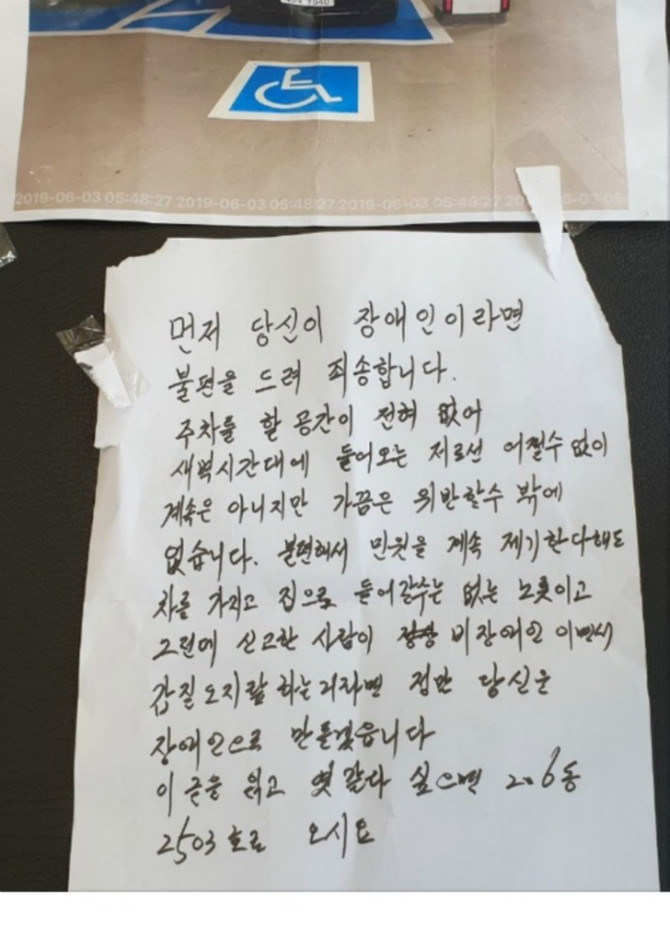 2019-06-03 05:48:27 2019-06-03 05:48:27 2019-06-03 05:48:27 20
먼저 당신이 장애인이라면
불편을 드려 죄송합니다.
주차를 할 공간이 전혀 없어
새벽시간대에 들어오는 저로선 어쩔수 없이
계속은 아니지만 가끔은 위반할수 밖에
없습니다. 불편해서 민원을 계속 제기한다해도
차를 가지고 집으로 들어갈수는 없는 노릇이고
그런데 신고한 사람이 비장애인 이면서
갑질 오지랖 하는거라면 점만 당신은
장애인으로 만들겠읍니다
이 글을 읽고 엿같다 싶으면 206동
2503호로 오시요